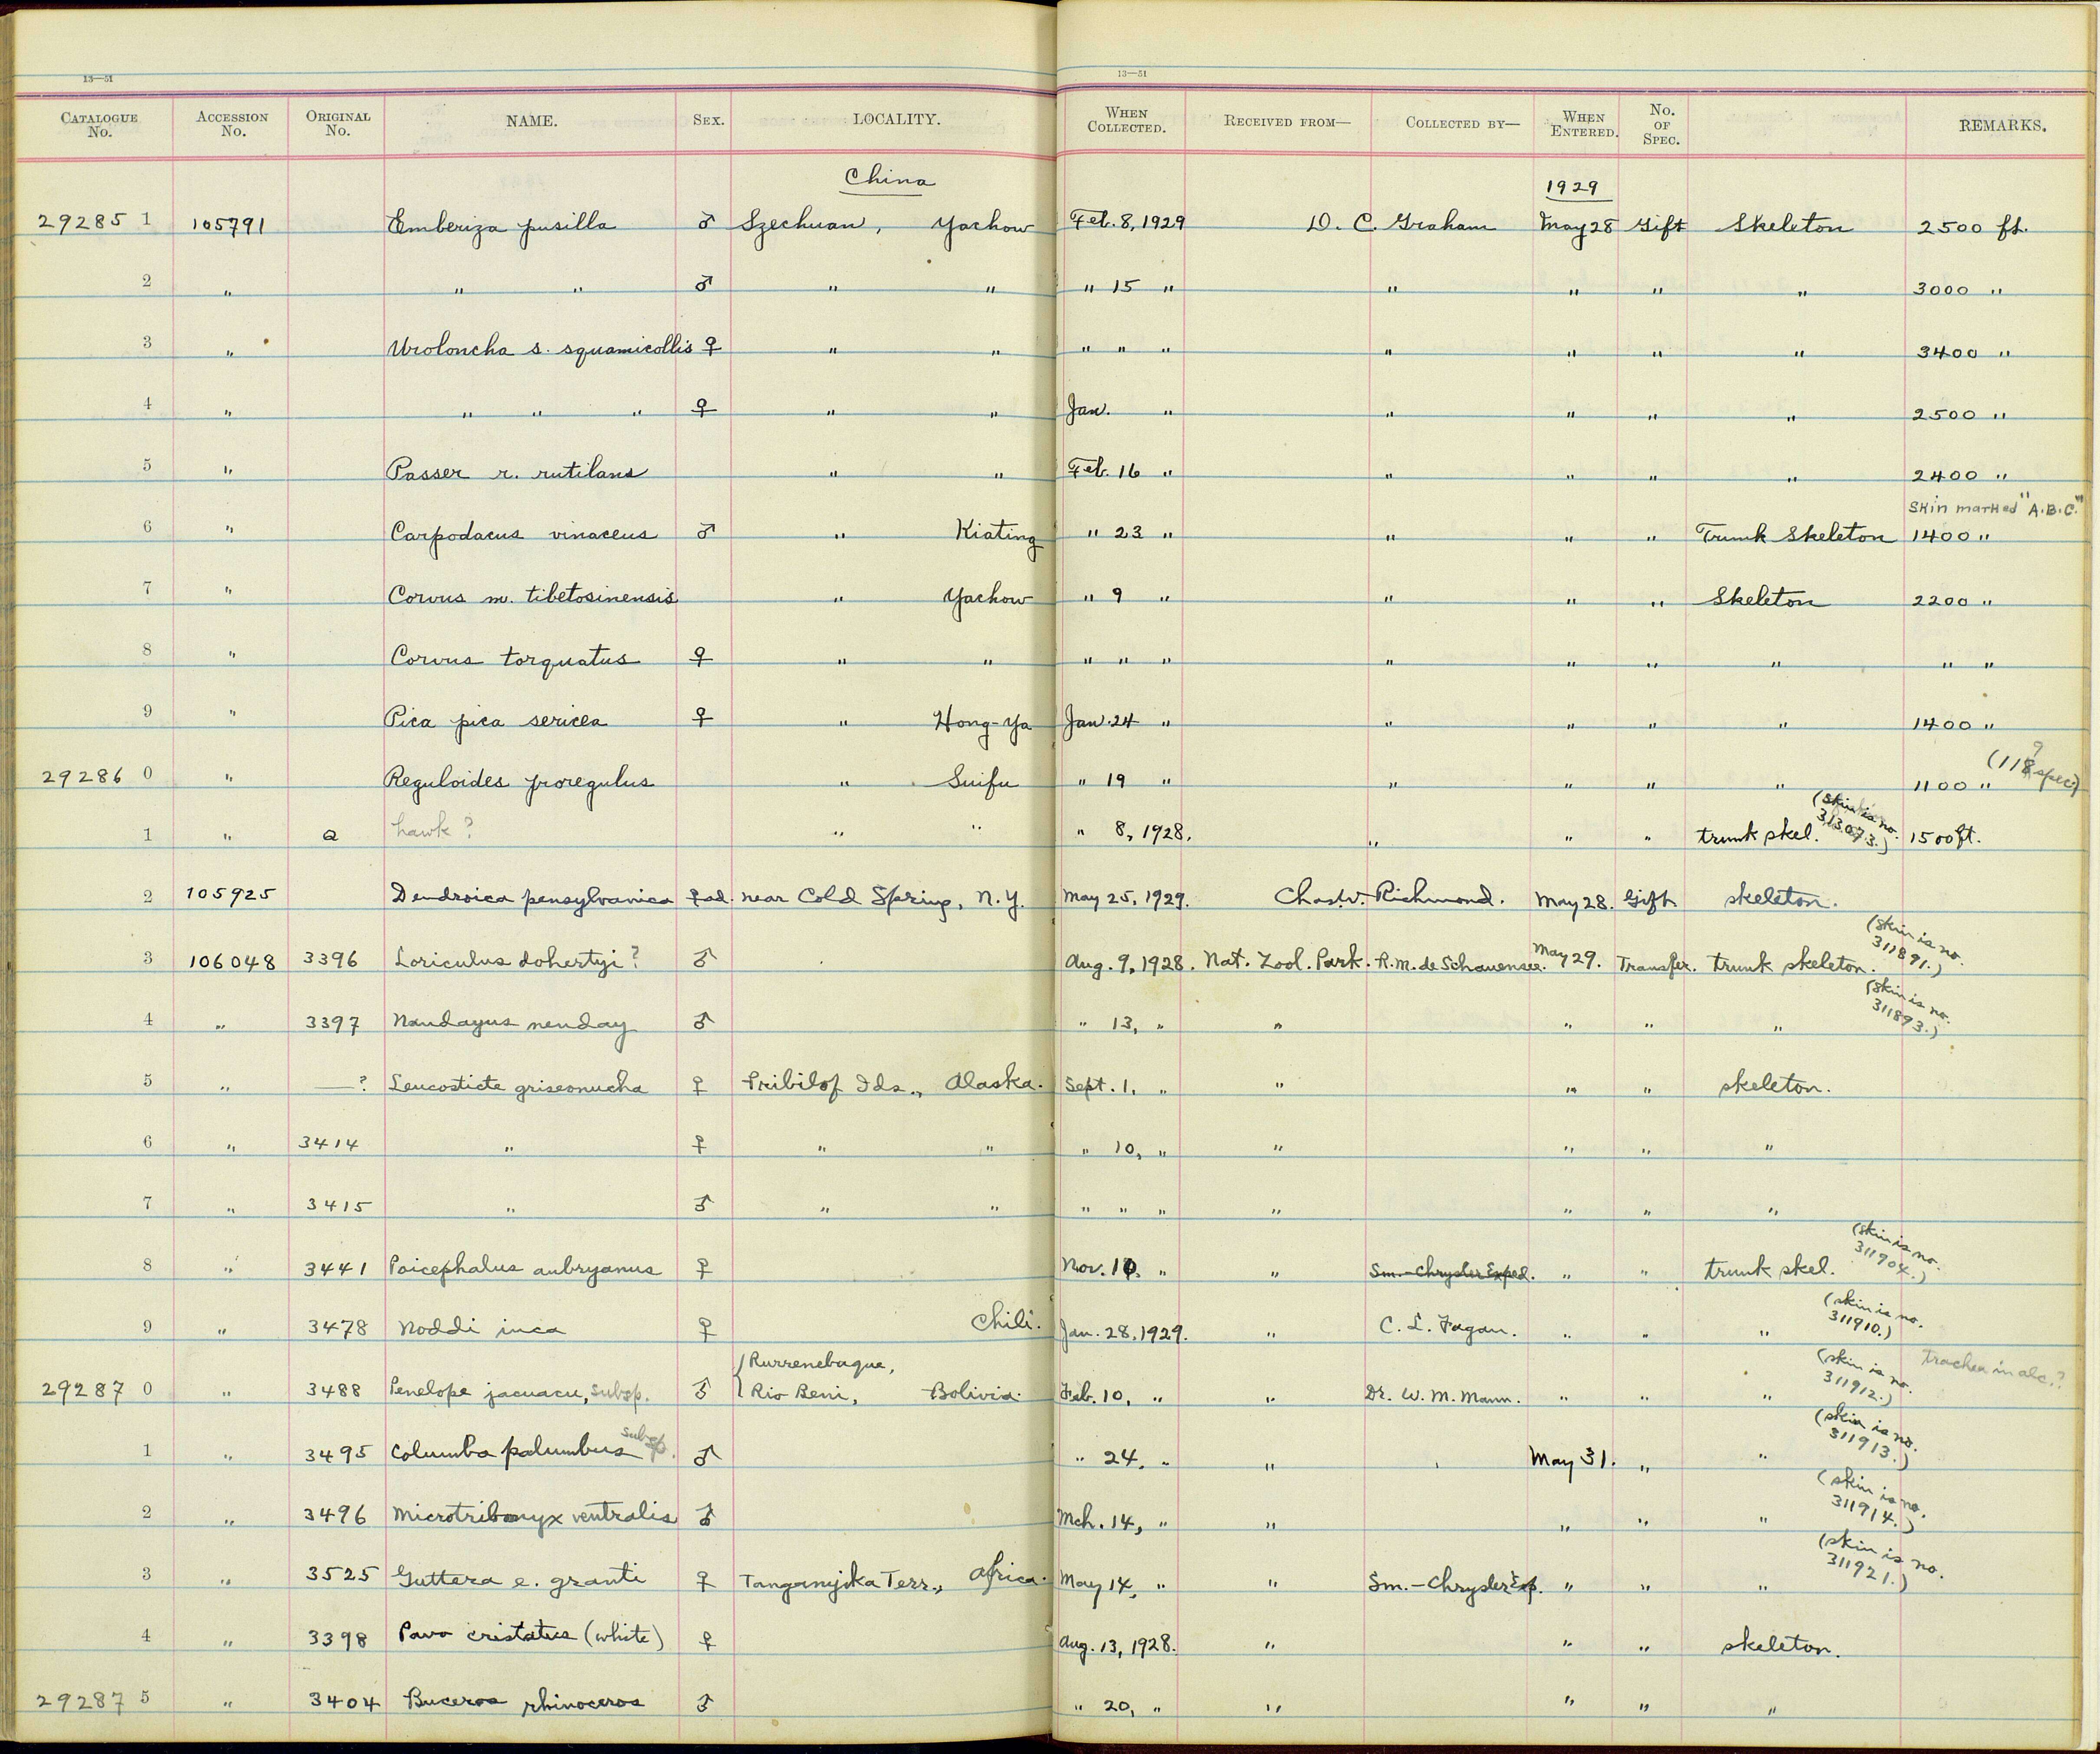 13—51 13—51
CATALOGUE No. ACCESSION No. ORIGINAL No. NAME. SEX. LOCALITY. WHEN COLLECTED. RECEIVED FROM— COLLECTED BY— WHEN ENTERED. No. OF SPEC. REMARKS.
China 1929
29285 1 105791 Emberiza pusilla ♂ Szechuan, Yachow Feb. 8, 1929 D. C. Graham May 28 Gift Skeleton 2500 ft.
2 " " " ♂ " " " 15 " " " " " 3000 "
3 " Uroloncha s. squamicollis ♀ " " " " " " " " " 3400 "
4 " " " " ♀ " " Jan. " " " " " 2500 "
5 " Passer r. rutilans " " Feb. 16 " " " " " 2400 "
Skin marked "A.B.C."
6 " Carpodacus vinaceus ♂ " Kiating " 23 " " " " Trunk Skeleton 1400 "
7 " Corvus m. tibetosinensis " Yachow " 9 " " " " Skeleton 2200 "
8 " Corvus torquatus ♀ " " " " " " " " " " "
9 " Pica pica sericea ♀ " Hong-Ya Jan. 24 " " " " " 1400 "
29286 0 " Reguloides proregulus " Suifu " 19 " " " " " 1100 " (118 ? spec)
1 " a hawk ? " " " 8, 1928. " " " trunk skel. (skin is no. 313073.) 1500 ft.
2 105925 Dendroica pensylvanica ♀ad. near Cold Spring, N.Y. May 25, 1929. Chas. W. Richmond. May 28. Gift. skeleton.
3 106048 3396 Loriculus dohertyi? ♂ Aug. 9, 1928. Nat. Zool. Park. R. M. de Schauensee. May 29. Transfer. trunk skeleton. (skin is no. 311891.)
4 " 3397 Nandayus nenday ♂ " 13, " " " " " (skin is no. 311893.)
5 " —? Leucosticte griseonucha ♀ Pribilof Ids., Alaska. Sept. 1, " " " " skeleton.
6 " 3414 " ♀ " " " 10, " " " " "
7 " 3415 " ♂ " " " " " " " " "
8 " 3441 Poicephalus aubryanus ♀ Nov. 10. " " Sm.-Chrysler Exped. " " trunk skel. (skin is no. 311904.)
9 " 3478 Noddi inca ♀ Chili. Jan. 28, 1929. " C. L. Fagan. " " " (skin is no. 311910.)
29287 0 " 3488 Penelope jacuacu, subsp. ♂ {Rurrenebaque, Rio Beni, Bolivia. Feb. 10, " " Dr. W. M. Mann. " " " (skin is no. 311912.) trachea in alc.?
1 " 3495 Columba palumbus subsp. ♂ " 24. " " May 31. " " (skin is no. 311913.)
2 " 3496 Microtribonyx ventralis ♂ Mch. 14, " " " " " (skin is no. 311914.)
3 " 3525 Guttera e. granti ♀ Tanganyika Terr., Africa. May 14, " " Sm.-Chrysler Exp. " " " (skin is no. 311921.)
4 " 3398 Pavo cristatus (white) ♀ Aug. 13, 1928. " " " skeleton.
29287 5 " 3404 Buceros rhinoceros ♂ " 20, " " " " "